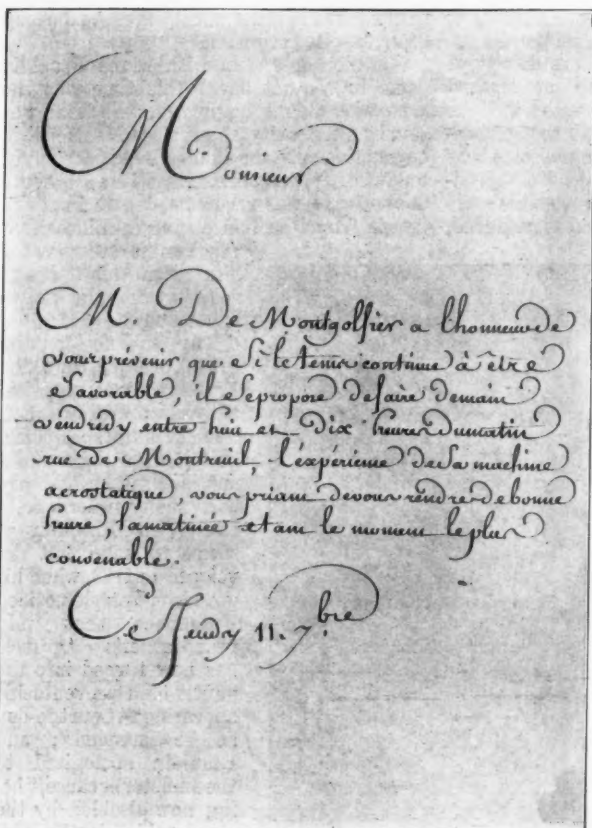 Monsieur
M. De Montgolfier a lhonneur de
vous prévenir que Si le tems continue à être
favorable, il se propose de faire demain
vendredy entre huit et Dix heures du matin
rue de Montreuil, l'éxpérience de Sa machine
aerostatique, vous priant de vous rendre de bonne
heure, la matinée etant le moment le plus
convenable.
Ce Jeudy 11. 7.bre